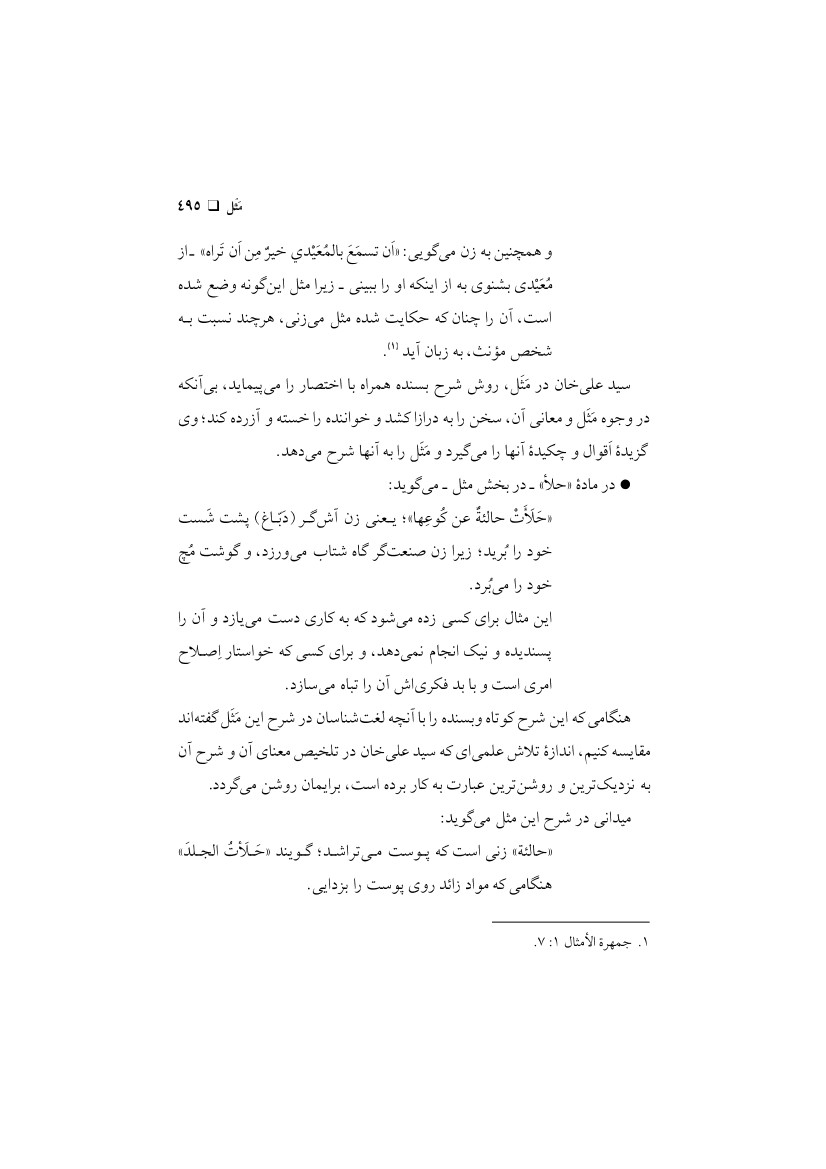 مَثَل ❑ ٤٩٥
و همچنین به زن می‌گویی: «اَن تسمَعَ بالمُعَیْدي خیرٌ مِن اَن تَراه» ـ از
مُعَیْدی بشنوی به از اینکه او را ببینی ـ زیرا مثل این‌گونه وضع شده
است، آن را چنان‌که حکایت شده مثل می‌زنی، هرچند نسبت به
شخص مؤنث، به زبان آید (۱).
سید علی‌خان در مَثَل، روش شرح بسنده همراه با اختصار را می‌پیماید، بی‌آنکه
در وجوه مَثَل و معانی آن، سخن را به درازا کشد و خواننده را خسته و آزرده کند؛ وی
گزیدهٔ اَقوال و چکیدهٔ آنها را می‌گیرد و مَثَل را به آنها شرح می‌دهد.
● در مادهٔ «حلأ» ـ در بخش مثل ـ می‌گوید:
«حَلَأَتْ حالئةٌ عن کُوعِها»؛ یعنی زن آش‌گر (دَبّاغ) پشت شَست
خود را بُرید؛ زیرا زن صنعت‌گر گاه شتاب می‌ورزد، و گوشت مُچ
خود را می‌بُرد.
این مثال برای کسی زده می‌شود که به کاری دست می‌یازد و آن را
پسندیده و نیک انجام نمی‌دهد، و برای کسی که خواستار اِصلاح
امری است و با بد فکری‌اش آن را تباه می‌سازد.
هنگامی که این شرح کوتاه وبسنده را با آنچه لغت‌شناسان در شرح این مَثَل گفته‌اند
مقایسه کنیم، اندازهٔ تلاش علمی‌ای که سید علی‌خان در تلخیص معنای آن و شرح آن
به نزدیک‌ترین و روشن‌ترین عبارت به کار برده است، برایمان روشن می‌گردد.
میدانی در شرح این مثل می‌گوید:
«حالئة» زنی است که پوست می‌تراشد؛ گویند «حَلَأتُ الجلدَ»
هنگامی که مواد زائد روی پوست را بزدایی.
۱. جمهرة الأمثال ۱: ۷.